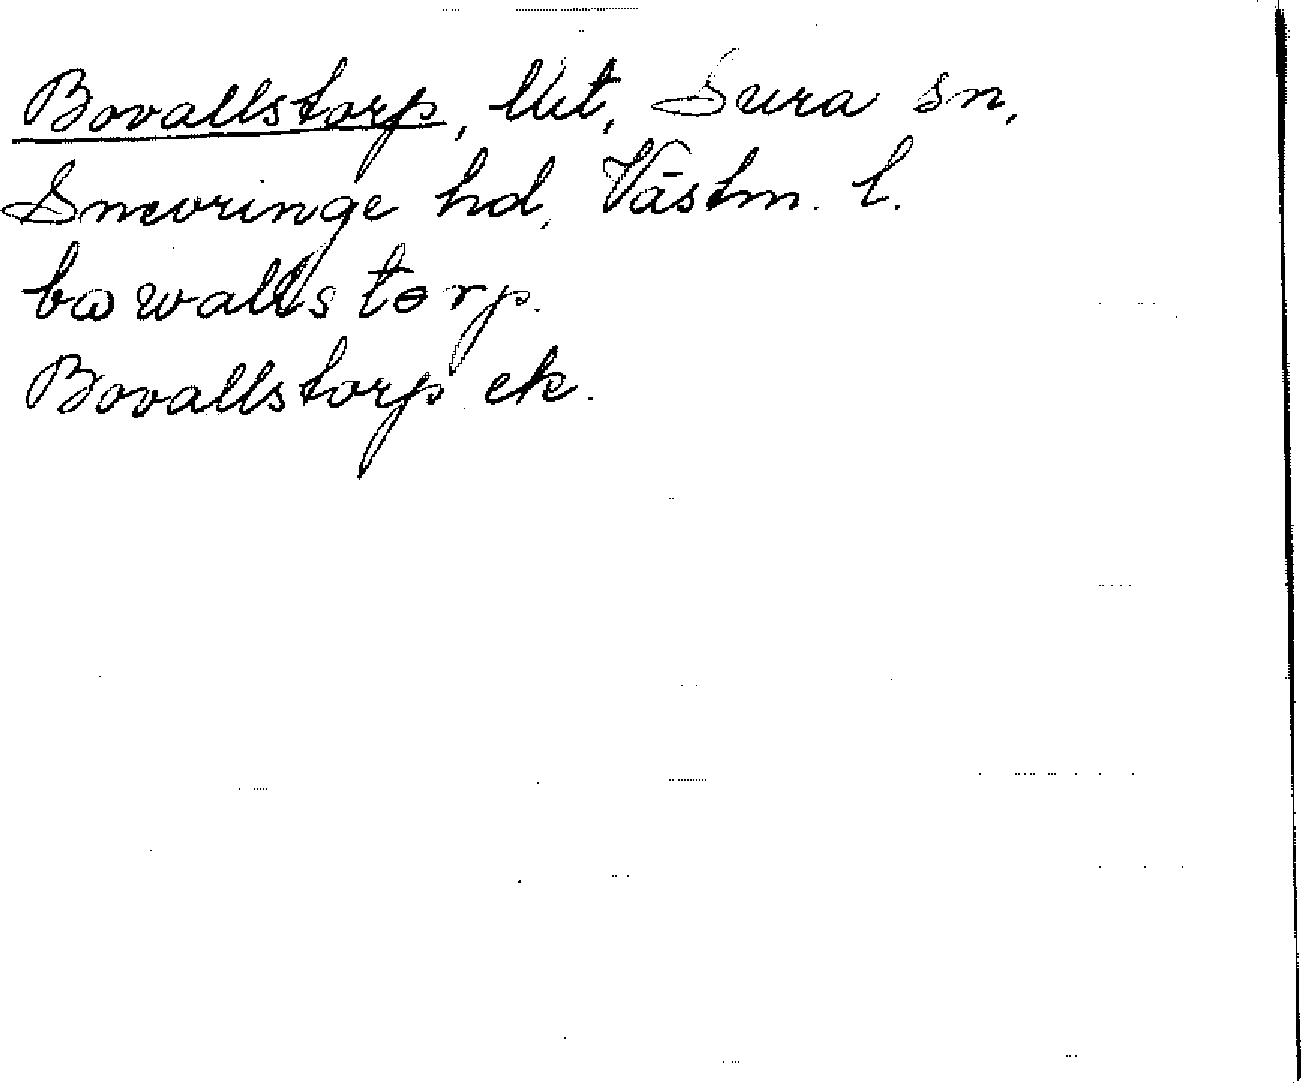 Bovallstorp, lht, Sura sn,
Snevringe hd, Västm. l.
bωwallstɵrp.
Bovallstorp ek.